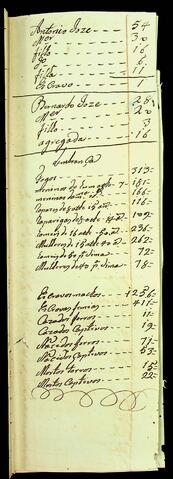 Antonio Joze - - - 54
Mer - - - 30
filho - - - 16
Do - - - 6
filha - - - 11
Escravo - - - 1
Bernardo Joze - - - 28
Mer - - - 20
filho - - - 3
agregada - - - 16
Lembrança
Fogos - - - 313
Meninos de hum athe 7 - 161
Rapazes de 8 athe 15 an
Raparigas de 8 athe 14 an
Homens de 16 athe 60 an 236
Mulheres de 15 athe 40 an 262
Homens de 60 pa sima - 72
Mulheres de 40 pa sima - 78
Escravos machos - -
Escravas femias - - 411
Cazados forros - - 11
Cazados Captivos - - 19
Nacidos forros - - 71
Nacidos Captivos - - 53
Mortos forros - - 15
Mortos Captivos - - 22